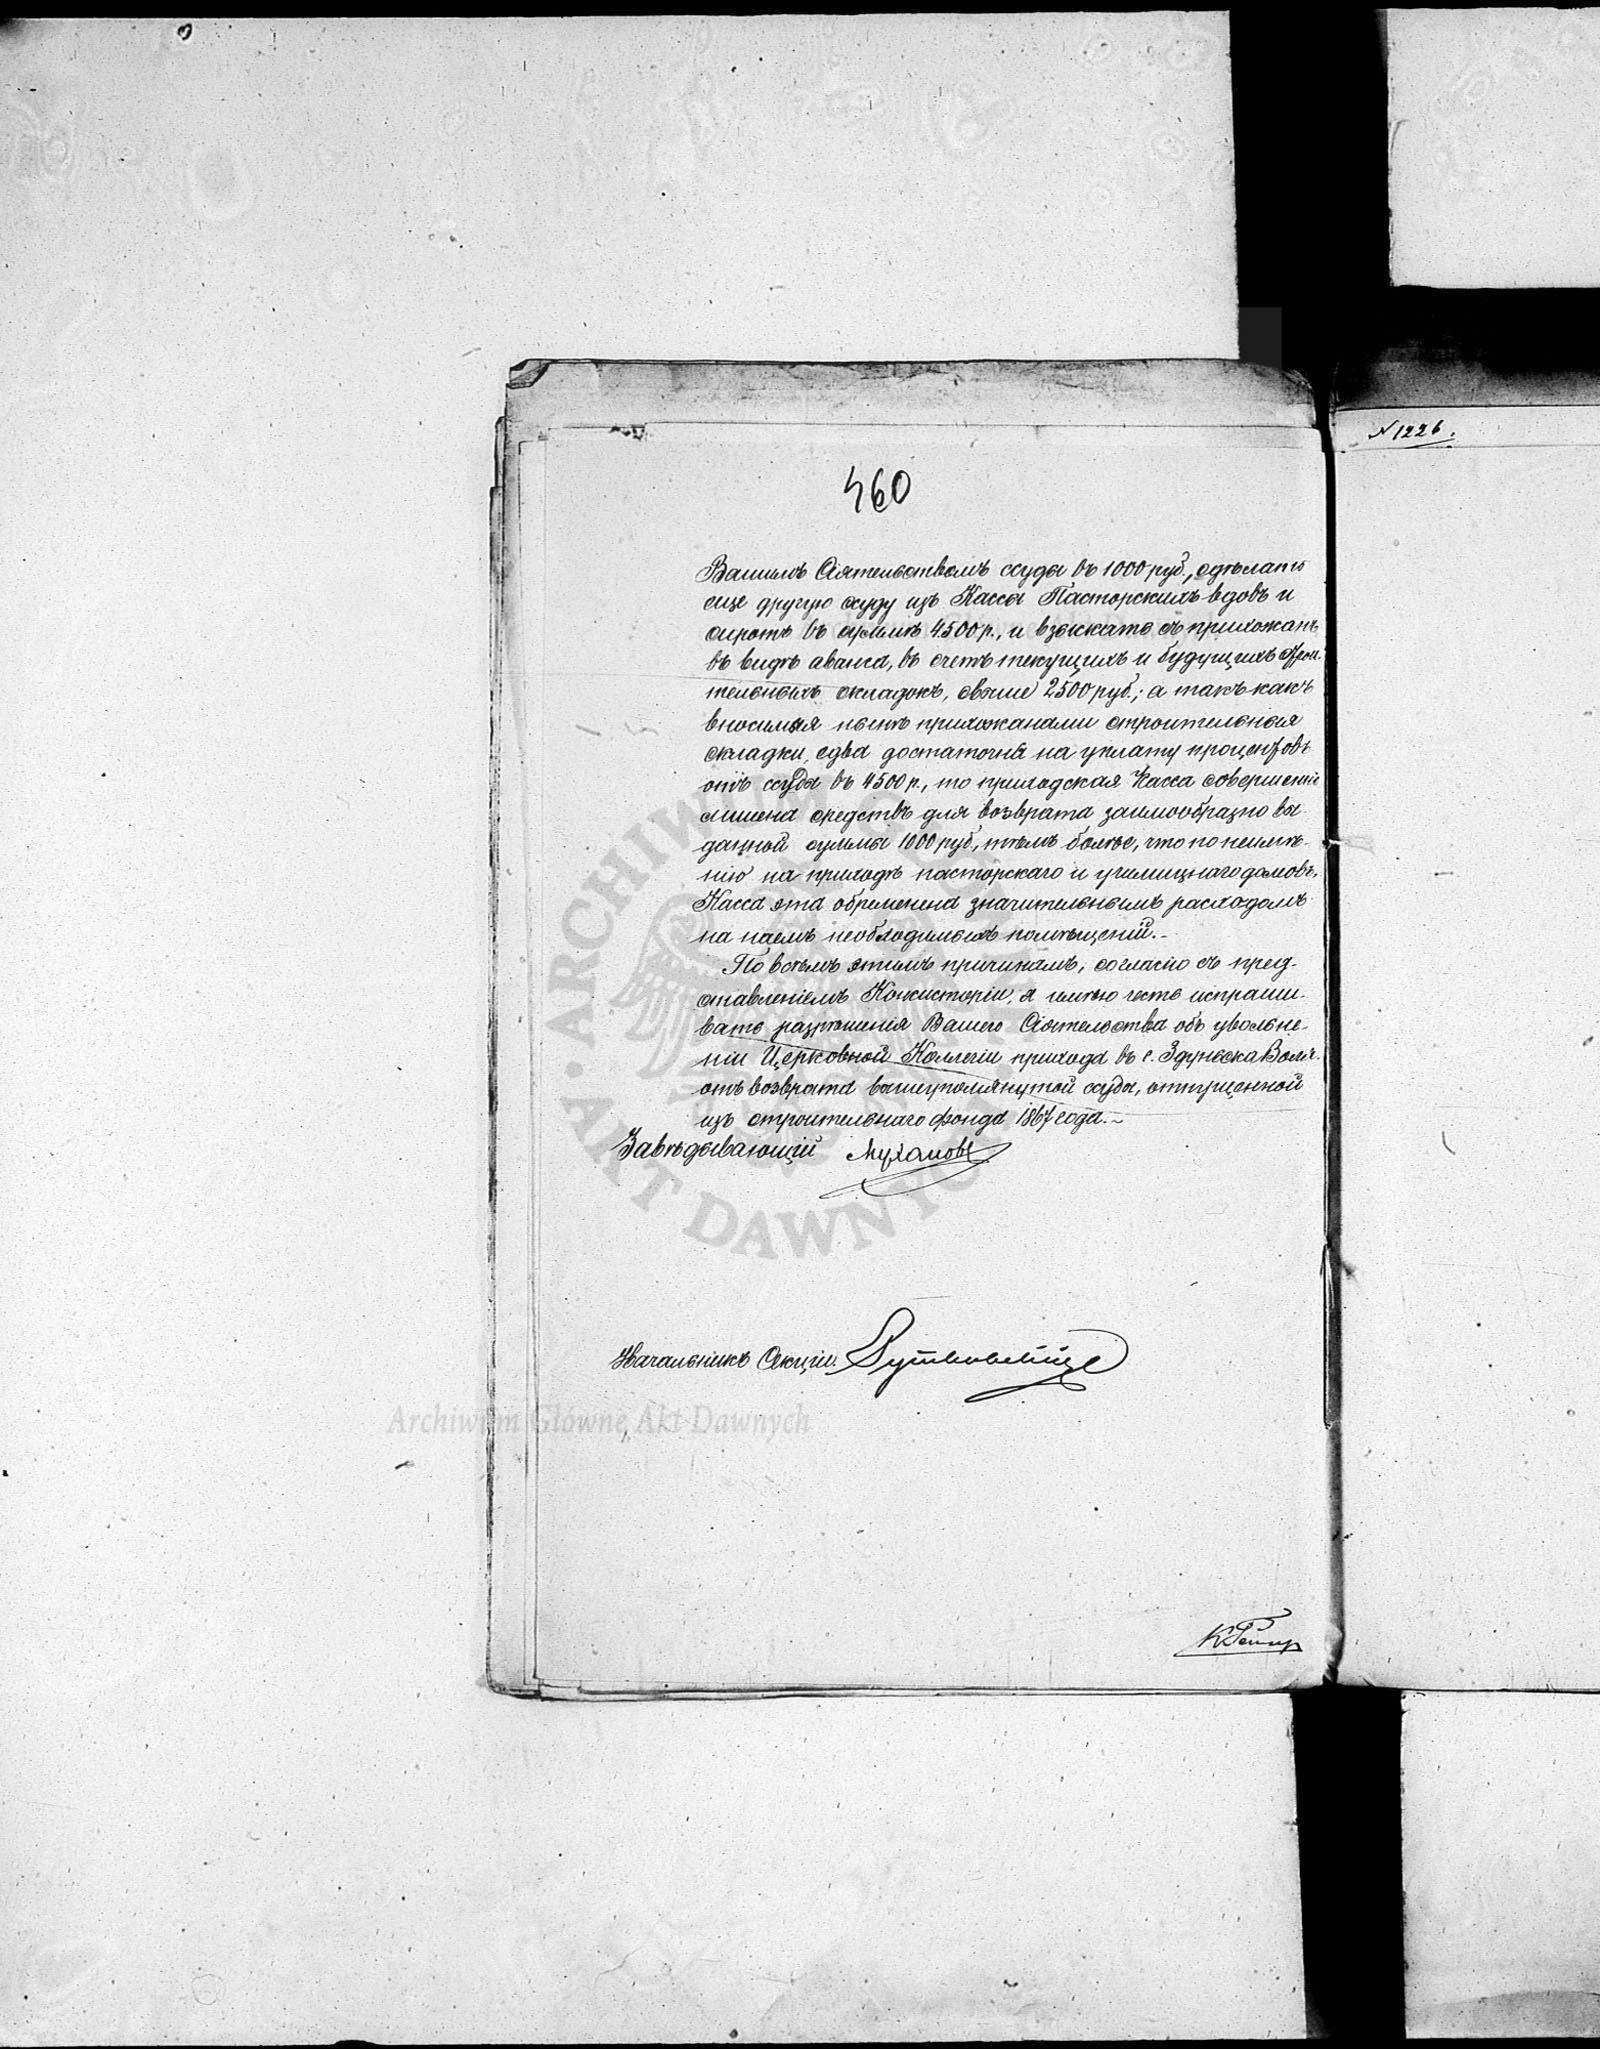 460
Вашимъ Сіятельствомъ ссуды въ 1000 руб., сдѣлать
еще другую ссуду изъ Кассы Пасторскихъ вдовъ и
сиротъ въ суммѣ 4500 р., и взыскать съ прихожанъ
въ видѣ аванса, въ счетъ текущихъ и будущихъ строи-
тельныхъ складокъ, свыше 2500 руб.; а такъ какъ
вносимыя нынѣ прихожанами строительныя
складки, едва достаточны на уплату процентовъ
отъ ссуды въ 4500 р., то приходская Касса совершенно
лишена средствъ для возврата заимообразно вы-
данной суммы 1000 руб, тѣмъ болѣе, что по неимѣ-
нію на приходѣ пасторскаго и училищнаго домовъ,
Касса эта обременена значительнымъ расходомъ
на наемъ необходимыхъ помѣщеній.
По всѣмъ этимъ причинамъ, согласно съ пред-
ставленіемъ Консисторіи, я имѣю честь испраши-
вать разрѣшенія Вашего Сіятельства объ увольне-
ніи Церковной Коллегіи прихода въ г. Здуньска Воля
отъ возврата вышеупомянутой ссуды, отпущенной
изъ строительнаго фонда 1867 года.
Завѣдывающій Мухановъ
Начальникъ Секціи
N 1226.
ARCHIWUM
AKT DAWNYCH
Archiwum Główne Akt Dawnych